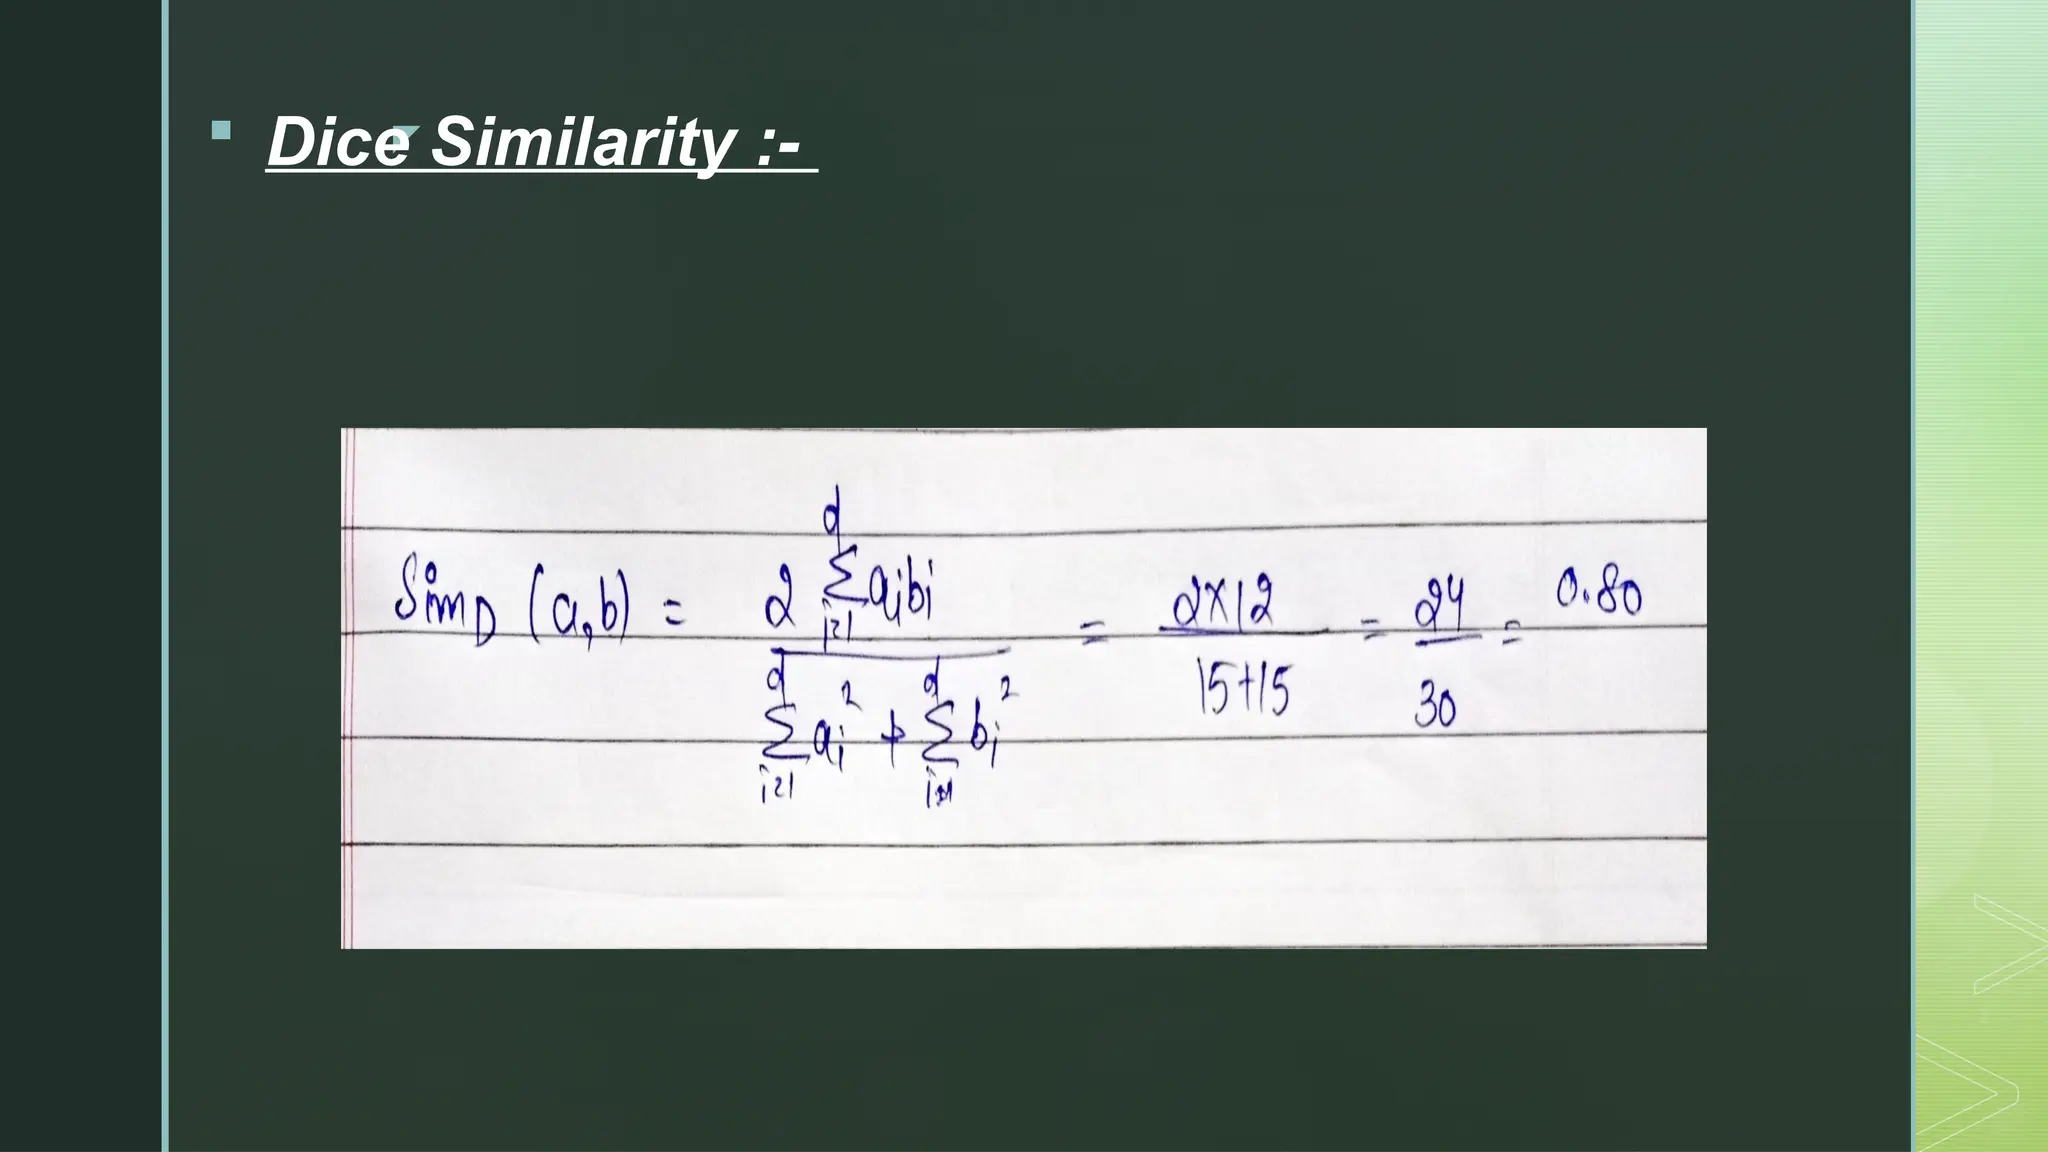 Dice Similarity :-
Sim_D (a,b) = \frac{2 \sum_{i=1}^{d} a_i b_i}{\sum_{i=1}^{d} a_i^2 + \sum_{i=1}^{d} b_i^2} = \frac{2×12}{15+15} = \frac{24}{30} = 0.80